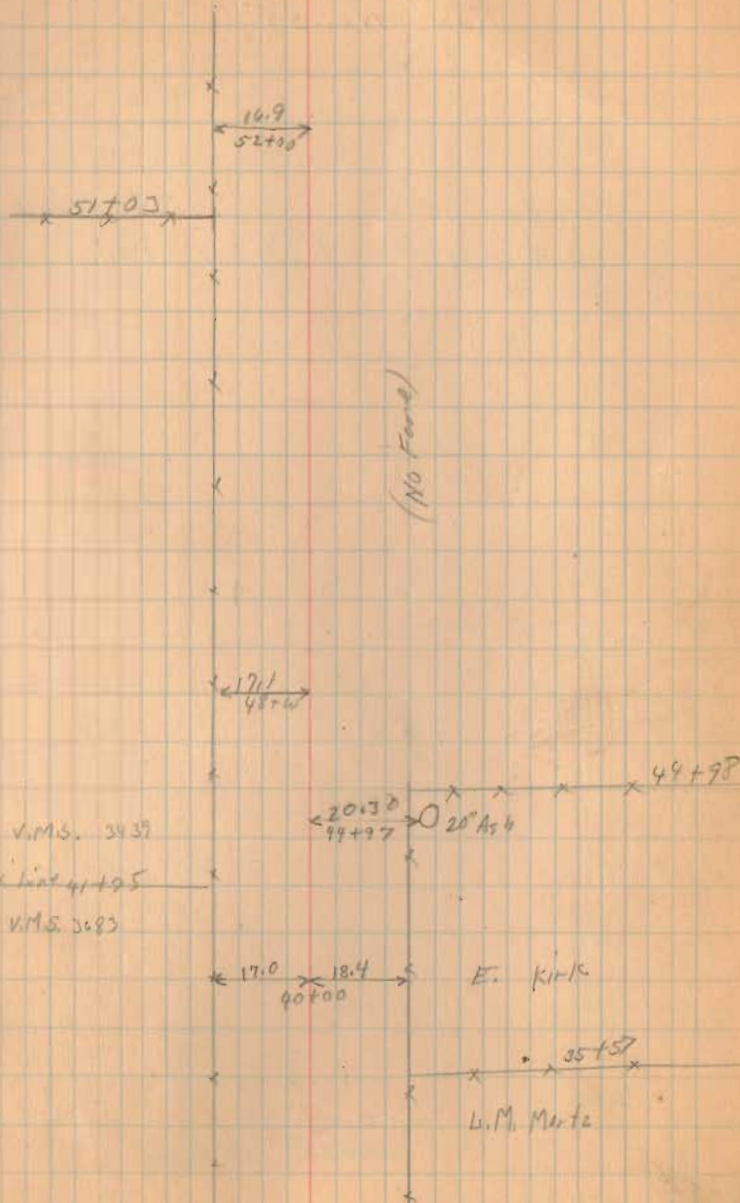 16.9
52+00
51+03
(No Fence)
17.1
44+98
20.30
44+97
20" Ash
V.M.S. 3439
Line 41+95
V.M.S. 3683
17.0 18.4
40+00
E. Kirk
35+57
L.M. Martz